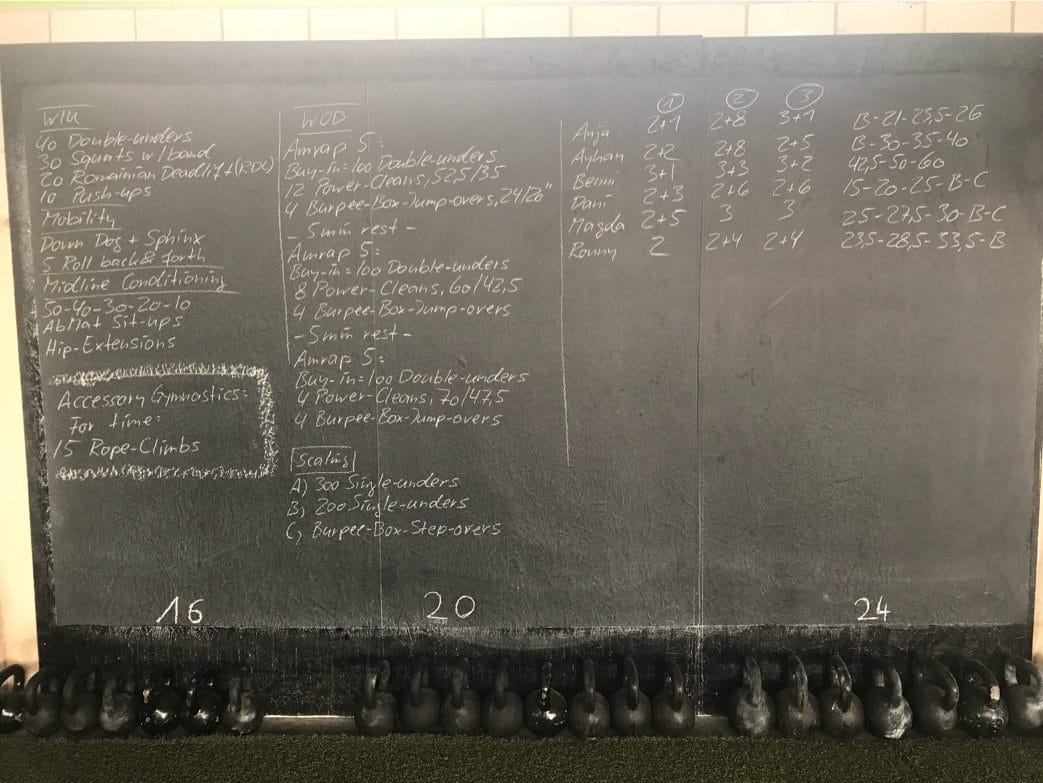 WU
40 Double-unders
30 Squats w/band
20 Romainian Deadlift (RDL)
10 Push-ups
Mobility
Down Dog + Sphinx
5 Roll back & forth
Midline Conditioning
50-40-30-20-10
AbMat Sit-ups
Hip-Extensions
Accessory Gymnastics:
For time:
15 Rope-Climbs
WOD
Amrap 5:
Buy-in: 100 Double-unders
12 Power-Cleans, 52,5/35
4 Burpee-Box-Jump-overs, 24/20"
- 5min rest -
Amrap 5:
Buy-in: 100 Double-unders
8 Power-Cleans, 60/42,5
4 Burpee-Box-Jump-overs
- 5min rest -
Amrap 5:
Buy-in: 100 Double-unders
4 Power-Cleans, 70/47,5
4 Burpee-Box-Jump-overs
Scaling
A) 300 Single-unders
B) 200 Single-unders
C) Burpee-Box-Step-overs
1 2 3
Anja 2+1 2+8 3+1 B-21-23,5-26
Ayhan 2+2 2+8 2+5 B-30-35-40
Benni 3+1 3+3 3+2 42,5-50-60
Dani 2+3 2+6 2+6 15-20-25-B-C
Magda 2+5 3 3 25-27,5-30-B-C
Ronny 2 2+4 2+4 23,5-28,5-33,5-B
16 20 24